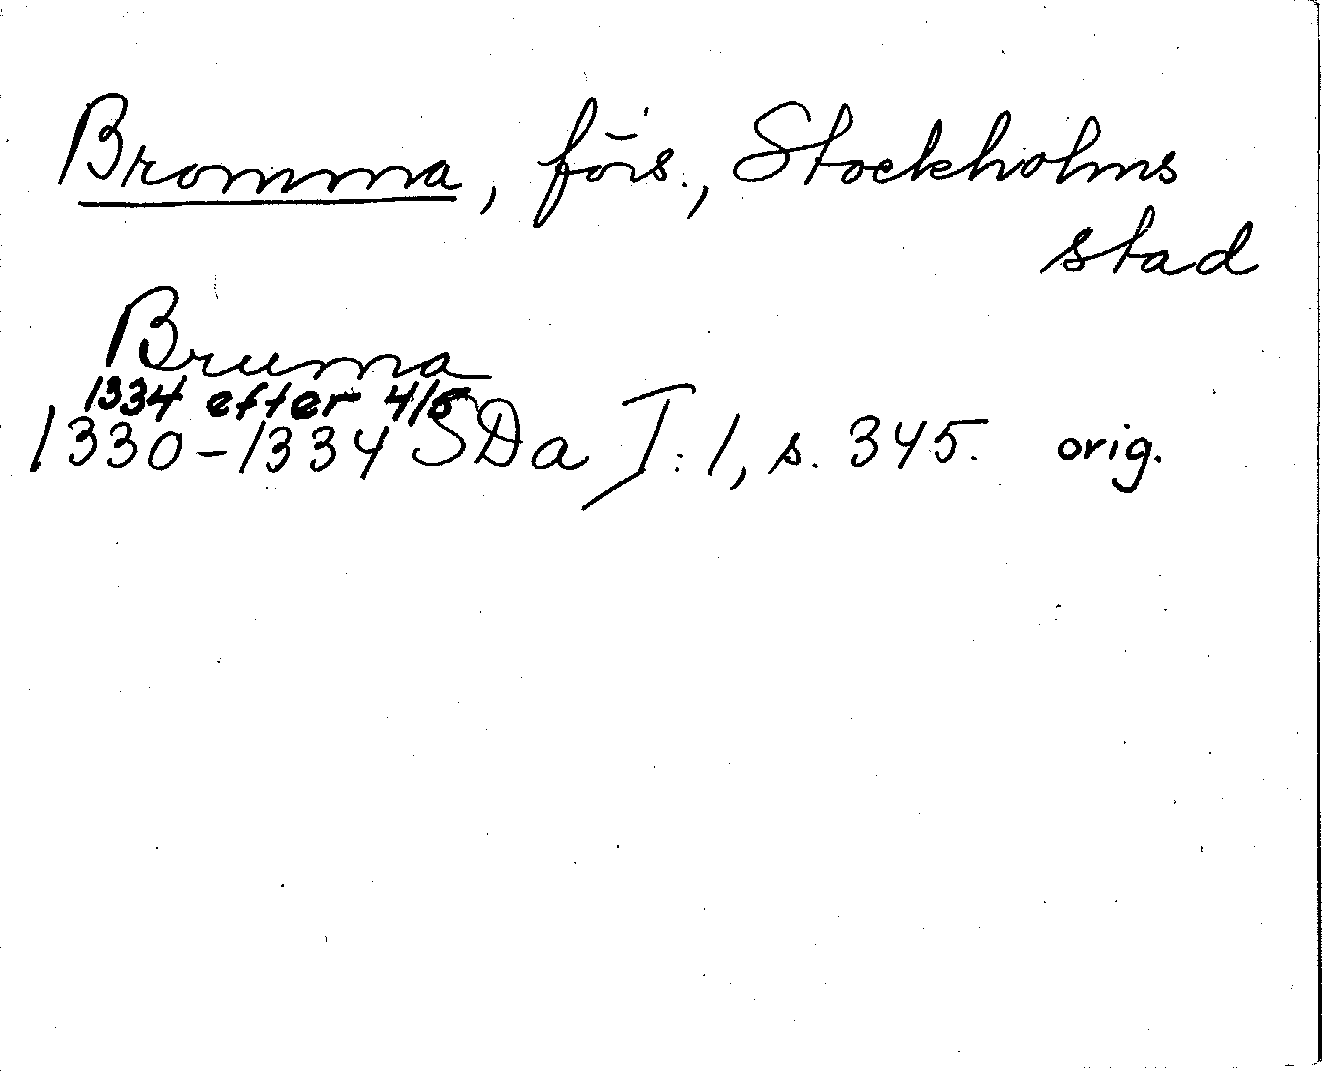 Bromma, förs., Stockholms
stad
Bruma
1334 efter 4/5
1330-1334 SDa I:1, s. 345. orig.